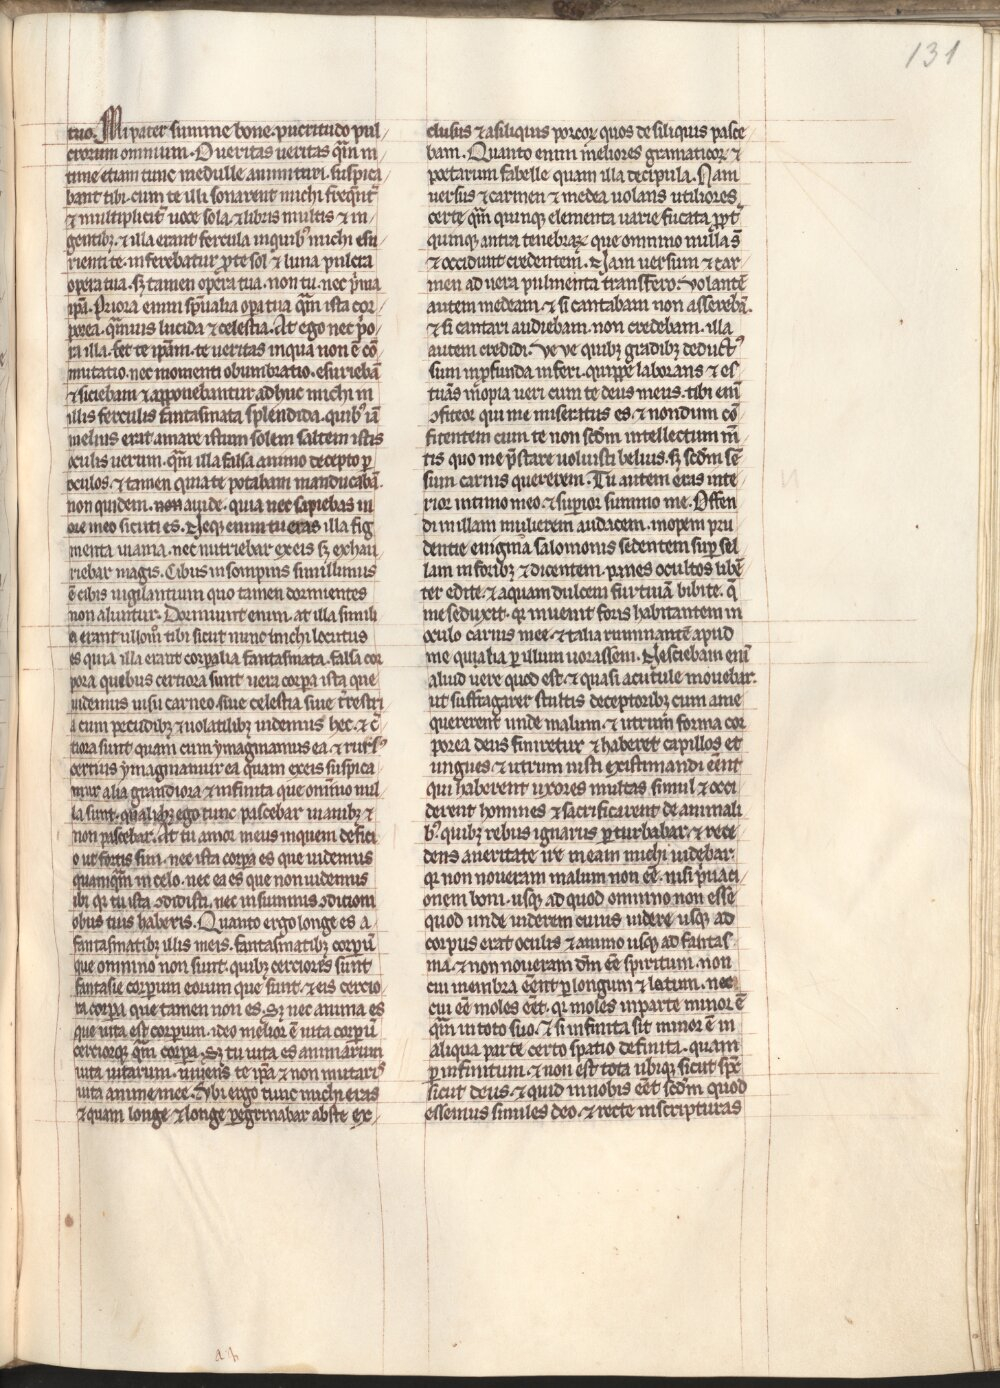 131
tuo. Mi pater summe bone. pucritudo pul
crorum omnium. O ueritas ueritas q̄m in
time etiam tunc medulle animi turi. suspira
bant tibi. cum te illi sonarent michi frequent̄
& multiplicit̄ uoce sola. & libris multis & in
gentibꝫ. & illa erant fercula in quibꝰ michi esu
rienti te. inferebatur pro te sol & luna pulcra
opera tua. sꝫ tamen opera tua. non tu. nec p̄ma
ip̄a. Priora enim sp̄ualia op̄a tua q̄m ista cor
porea. q̄muis lucida & celestia. At ego nec p̄o
ra illa. set te ip̄am. te ueritas in qua non ē cō
mutatio. nec momenti obumbratio. esuriebā
& siciebam & apponebantur adhuc michi in
illis ferculis fantasmata splendida. quibꝰ iā
melius erat amare istum solem saltem istis
oculis uerum. q̄m illa falsa animo decepto ꝑ
oculos. & tamen quia te putabam manducabā.
non quidem. non auide. quia nec sapiebas in
ore meo sicuti es. Neqꝫ enim tu eras illa fig
menta inania. nec nutriebar ex eis sꝫ exhau
riebar magis. Cibus in sompnis simillimus
ē cibis uigilantium quo tamen dormientes
non aluntur. Dormiunt enim. at illa simili
a erant ullom̄ tibi sicut nunc michi locutus
es quia illa erant corꝑalia fantasmata. falsa cor
pora quebus certiora sunt uera corpa ista que
uidemus uisu carneo. siue celestia siue t̄restri
a cum pecudibꝫ & uolatilibꝫ uidemus hec. & c̄
tiora sunt quam cum ymaginamus ea. & rursꝰ
certius ymaginamur ea quam ex eis suspica
mur alia grandiora & infinita que omīno nul
la sunt. qualibꝫ ego tunc pascebar inanibꝫ &
non pascebar. At tu amor meus in quem defici
o ut fortis sim. nec ista corpa es que uidemus
quamq̄m in celo. nec ea es que non uidemus
ibi qꝛ tu ista ꝯdidisti. nec in summis ꝯdition
obus tuis haberis. Quanto ergo longe es a
fantasmatibꝫ illis meis. fantasmatibꝫ corpū
que omnino non sunt. quibꝫ cerciores sunt
fantasie corporum eorum que sunt. & eis cercio
ra corpa que tamen non es. Sꝫ nec anima es
que uita est corporum. ideo melior ē uita corpū
cerciorqꝫ q̄m corpa. Sꝫ tu uita es animarum
uita uitarum. uiuens te ip̄a & non mutaris
uita anime mee. Ubi ergo tunc michi eras
& quam longe. & longe ꝑegrinabar abs te ex
clusus & a siliquis porcoꝝ quos de siliquis pasce
bam. Quanto enim meliores gramaticoꝝ &
poetarum fabelle quam illa decipula. Nam
uersus & carmen & medea uolans utiliores
certe q̄m quinqꝫ elementa uarie fucata ꝓpt̄
quinqꝫ antra tenebraꝝ. que omnino nulla s̄
& occidunt credentem. Nam uersum & car
men ad uera pulmenta transfero. uolantē
autem medeam. & si cantabam non asserebā.
& si cantari audiebam. non credebam. illa
autem credidi. Ve ve quibꝫ gradibꝫ deductꝰ
sum in ꝓfunda inferi. quippe laborans & es
tuās inopia ueri cum te deus meus. tibi enī
ꝯfiteor qui me miseritus es. & nondum cō
fitentem cum te non secdm intellectum m̄
tis quo me p̄stare uoluisti beluis. sꝫ secdm sē
sum carnis quererem. Tu autem eras inte
rior intimo meo. & superior summo me. Offen
di in illam mulierem audacem. inopem pru
dentie enigma salomonis sedentem super sel
lam in foribꝫ & dicentem. panes ocultos libē
ter edite. & aquam dulcem furtiuā bibite. q̄
me seduxit. qꝛ inuenit foris habitantem in
oculo carnis mee. & talia ruminantē apud
me qualia ꝑ illum uorassem. Nesciebam enī
aliud uere quod est. & quasi acutule mouebar.
ut suffragarer stultis deceptoribꝫ cum a me
quererent unde malum. & utrum forma cor
porea deus finiretur & haberet capillos et
ungues. & utrum iusti existimandi eēnt
qui haberent uxores multas simul & occi
derent homines & sacrificarent de animali
bꝰ. quibꝫ rebus ignarus ꝑturbabar. & rece
dens a ueritate ire in eam michi uidebar.
qꝛ non noueram malum non eē. nisi p̄uaci
onem boni. usqꝫ ad quod omnino non esse
quod unde uiderem cuius uidere usqꝫ ad
corpus erat oculis & animo usqꝫ ad fantas
ma. & non noueram dm̄ eē spiritum. non
cui membra eēnt ꝑ longum & latum. nec
cui eē moles eēt. qꝛ moles in parte minor ē
q̄m in toto suo. & si infinita sit minor ē in
aliqua parte certo spatio definita. quam
ꝑ infinitum. & non est tota ubiqꝫ sicut sp̄c
sicut deus. & quid in nobis eēt secdm quod
essemus similes deo. & recte in scripturas